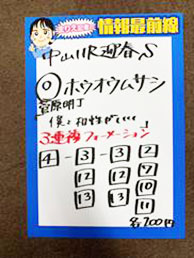 情報最前線
中山11R 迎春S
◎ホウオウムサシ
菅原明丁
僕と相性が……!
3連複フォーメーション
4-3-3 2
12 12 7
13 13 9
10
11
各200円